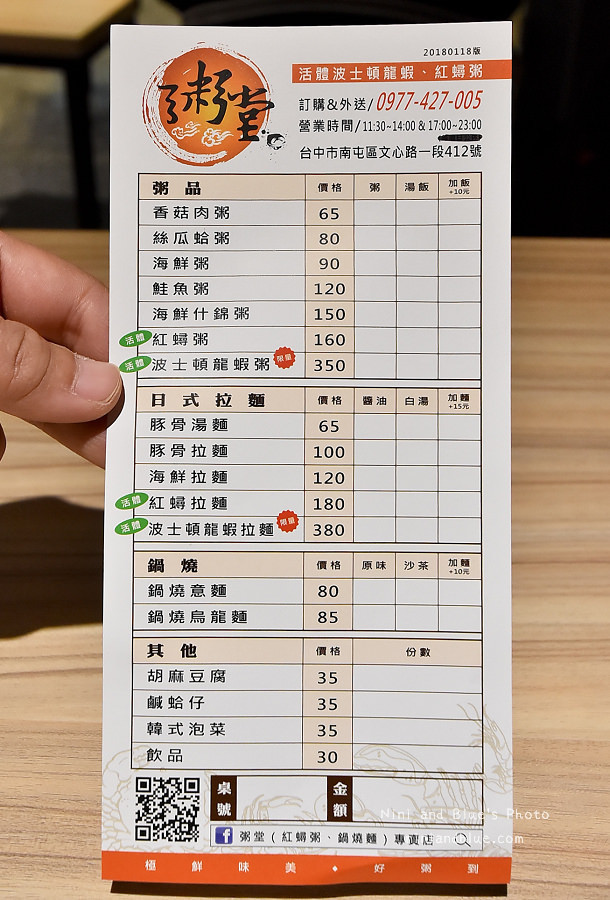 粥堂
20180118版
活體波士頓龍蝦、紅蟳粥
訂購&外送/0977-427-005
營業時間/11:30~14:00 & 17:00~23:00
台中市南屯區文心路一段412號
粥品 價格 粥 湯飯 加飯 +10元
香菇肉粥 65
絲瓜蛤粥 80
海鮮粥 90
鮭魚粥 120
海鮮什錦粥 150
活體 紅蟳粥 160
活體 波士頓龍蝦粥 限量 350
日式拉麵 價格 醬油 白湯 加麵 +15元
豚骨湯麵 65
豚骨拉麵 100
海鮮拉麵 120
活體 紅蟳拉麵 180
活體 波士頓龍蝦拉麵 限量 380
鍋燒 價格 原味 沙茶 加麵 +10元
鍋燒意麵 80
鍋燒烏龍麵 85
其他 價格 份數
胡麻豆腐 35
鹹蛤仔 35
韓式泡菜 35
飲品 30
桌號 金額
Nini and Blue's Photo
nianblue.com
f 粥堂(紅蟳粥、鍋燒麵)專賣店
極鮮味美・好粥到